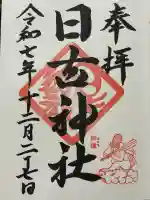 奉拝
日吉神社
令和七年十二月二十七日